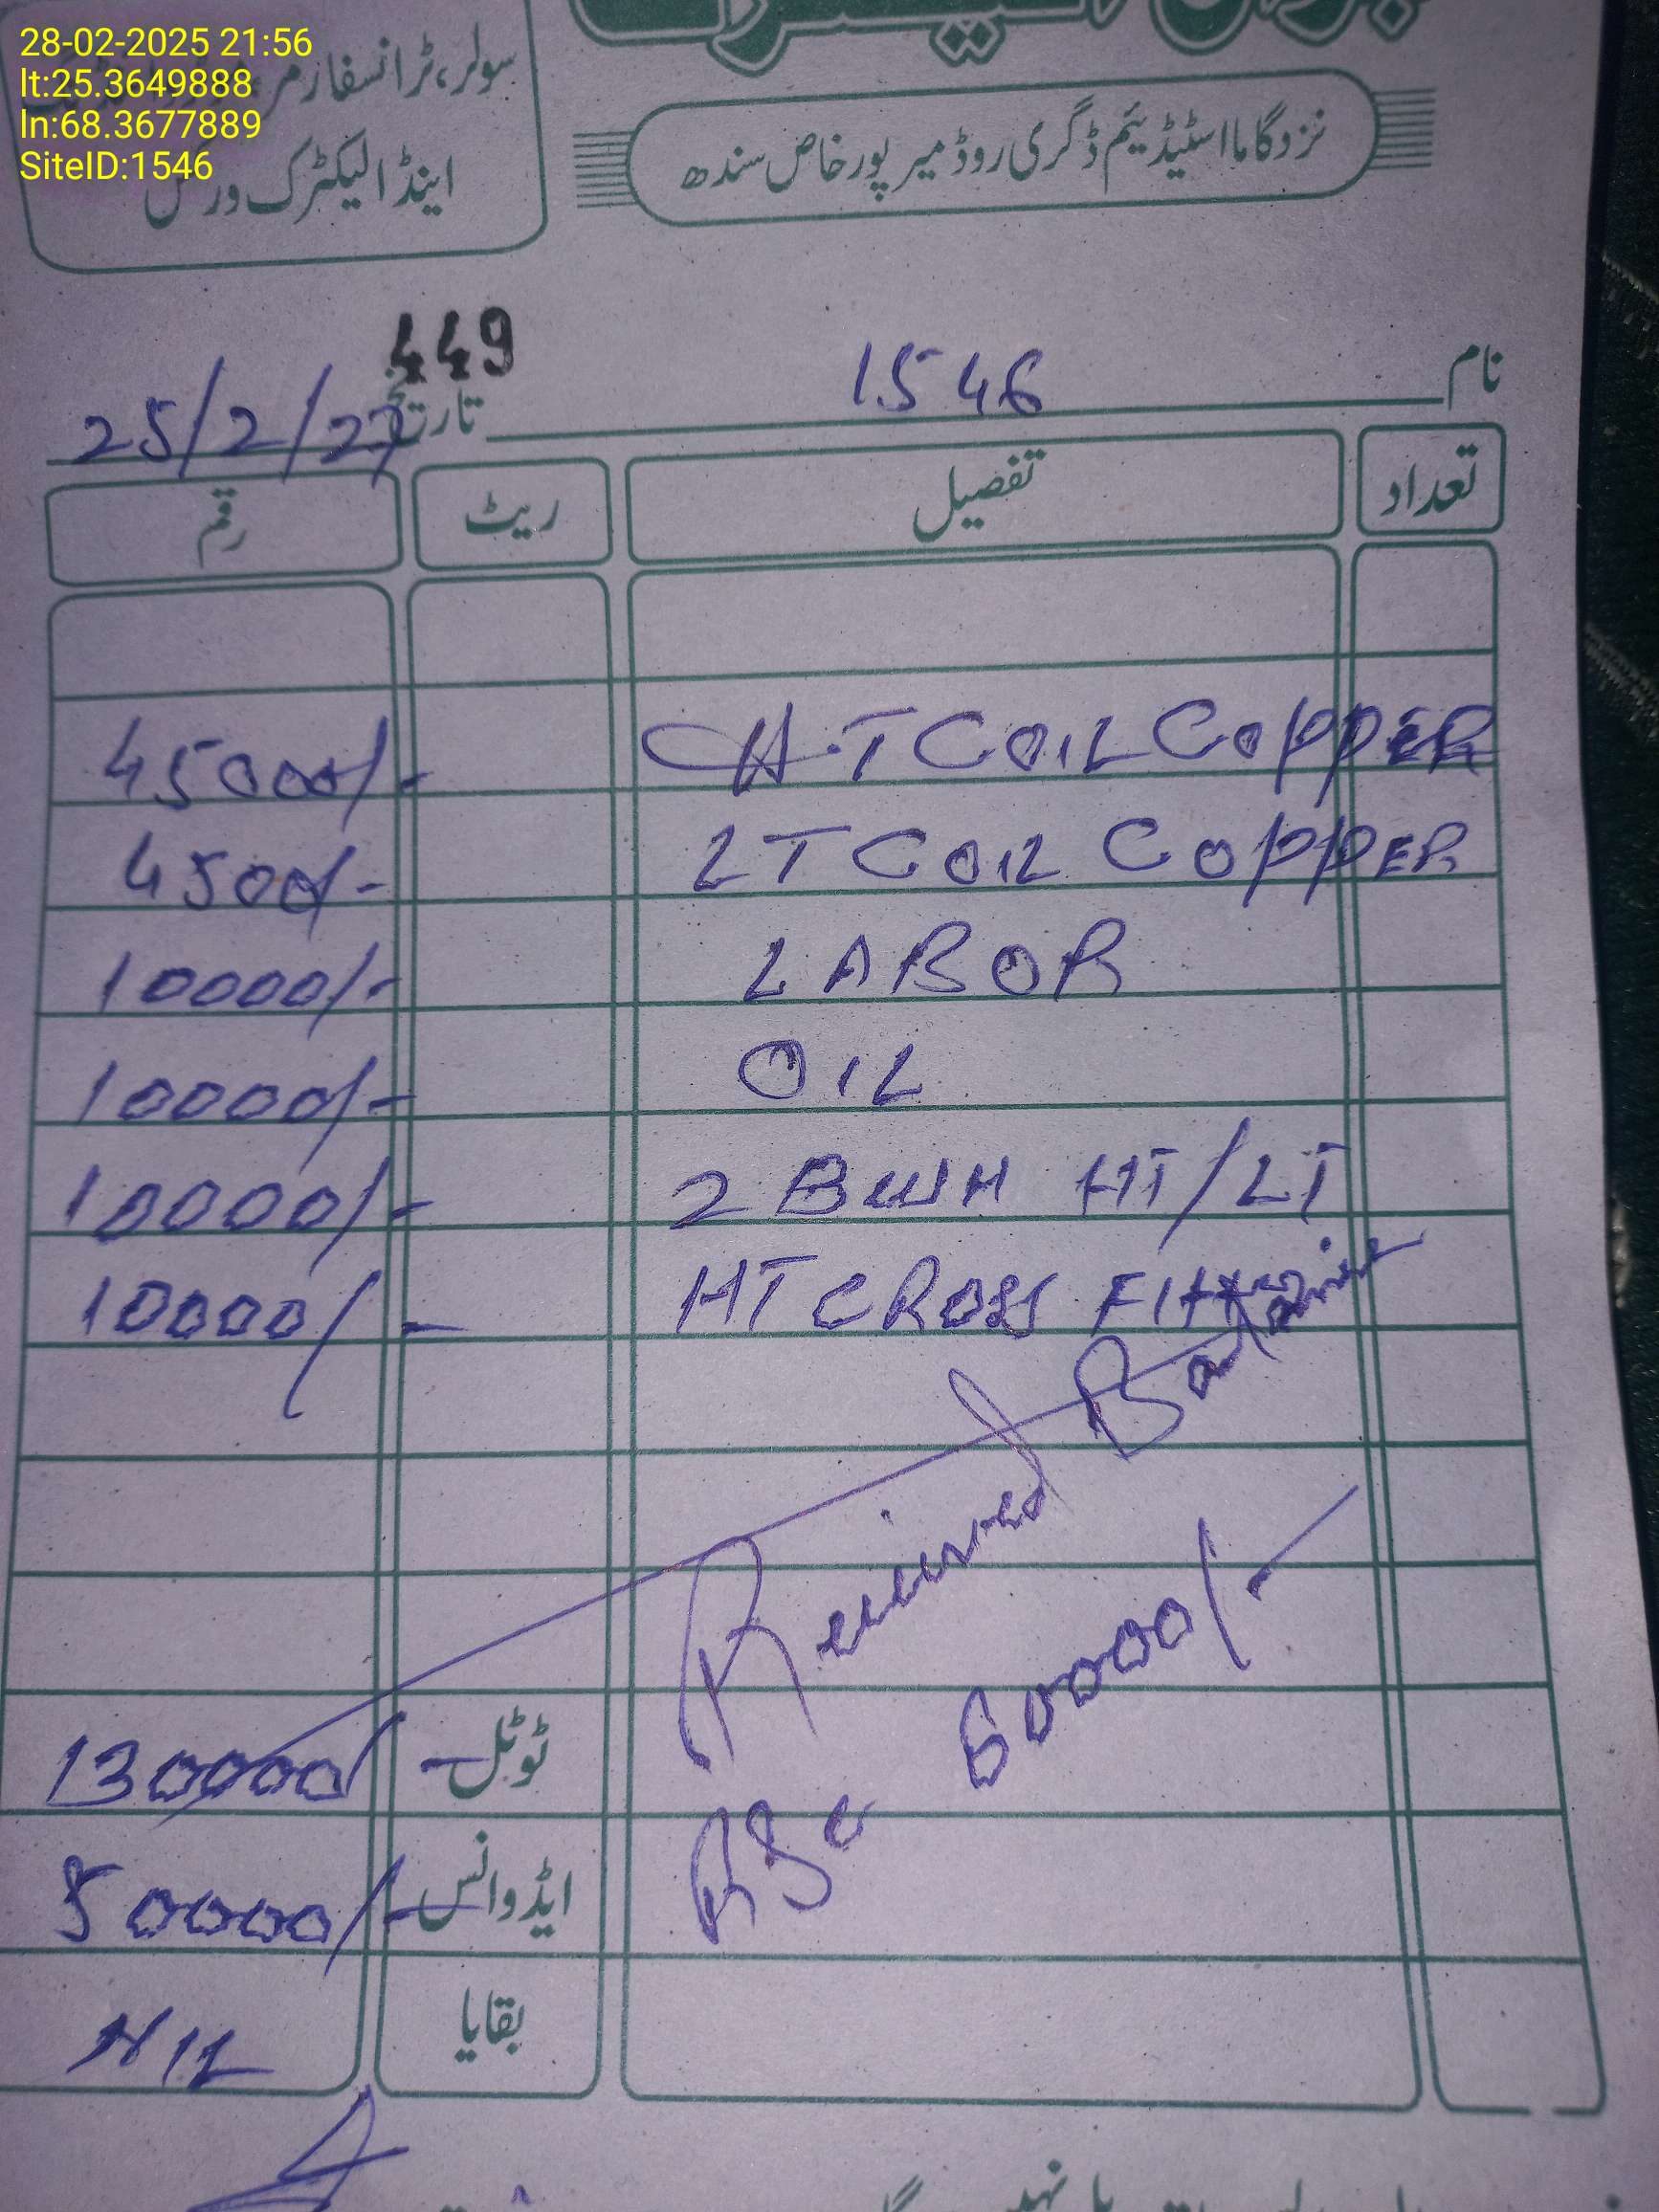 28-02-2025 21:56
lt:25.3649888
ln:68.3677889
SiteID:1546
سولر، ٹرانسفارمر،
اینڈ الیکٹرک ورکس
نزد گاما اسٹیڈیئم ڈگری روڈ میرپورخاص سندھ
449
نام 1546 تاریخ 25/2/27
تعداد تفصیل ریٹ رقم
H.T COIL COPPER 45000/-
LT COIL COPPER 4500/-
LABOR 10000/-
OIL 10000/-
2 BUSH HT/LT 10000/-
HT CROSS FITTING 10000/-
Received Balance
RS. 60000/-
ٹوٹل 130000/-
ایڈوانس 50000/-
بقایا NIL